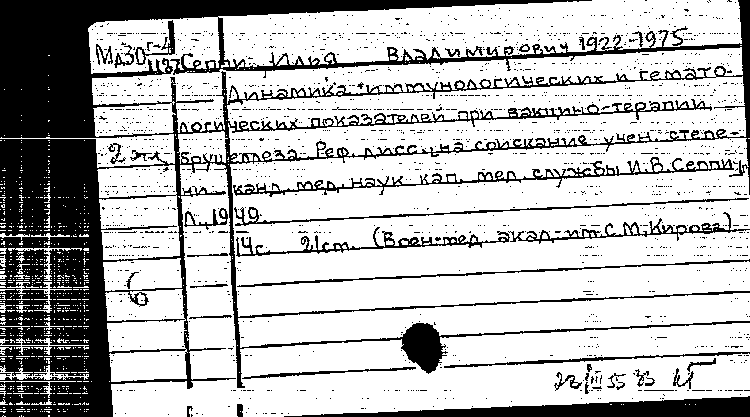 Мд30 г-4
1187 Сеппи, Илья Владимирович, 1922-1975
Динамика иммунологических и гемато-
логических показателей при вакцино-терапии
2 экз. бруцеллеза. Реф. дисс. на соискание учен. степе-
ни канд. мед. наук кап. мед. службы И.В.Сеппи
Л., 1949.
14с. 21см. (Воен-мед. акад. им С.М.Кирова)
6
22/III 55 83